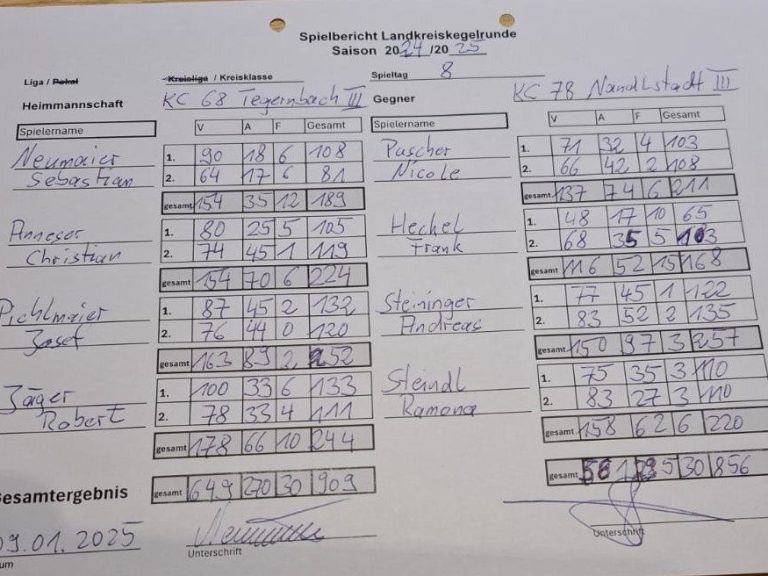 Spielbericht Landkreiskegelrunde
Saison 2024/2025
Liga / Pokal
Kreisliga / Kreisklasse
Spieltag 8
Heimmannschaft KC 68 Tegernbach III
Gegner KC 78 Nandlstadt III
Spielername V A F Gesamt
Neumaier 1. 90 18 6 108
Sebastian 2. 64 17 6 81
gesamt 154 35 12 189
Anneser 1. 80 25 5 105
Christian 2. 74 45 1 119
gesamt 154 70 6 224
Pichlmaier 1. 87 45 2 132
Josef 2. 76 44 0 120
gesamt 163 89 2 252
Jäger 1. 100 33 6 133
Robert 2. 78 33 4 111
gesamt 178 66 10 244
Gesamtergebnis gesamt 649 30 909
Spielername V A F Gesamt
Puscher 1. 71 32 4 103
Nicole 2. 66 42 2 108
gesamt 137 74 6 211
Heckel 1. 48 17 10 65
Frank 2. 68 35 5 103
gesamt 116 52 15 168
Steininger 1. 77 45 1 122
Andreas 2. 83 52 2 135
gesamt 150 97 3 257
Steindl 1. 75 35 3 110
Ramona 2. 83 27 3 110
gesamt 158 62 6 220
gesamt 30 856
09.01.2025
Unterschrift
Unterschrift